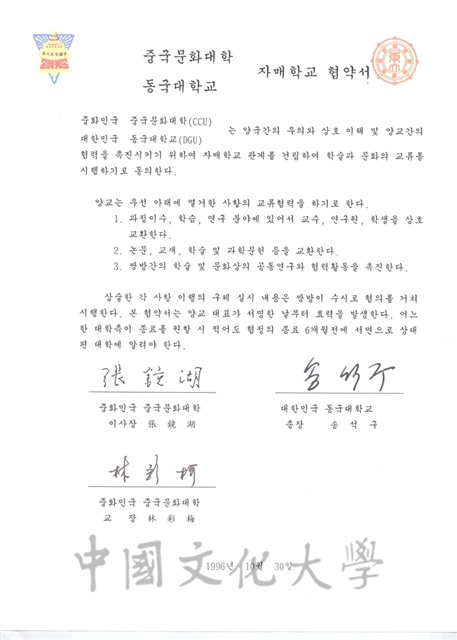 중국문화대학
동국대학교
자매학교 협약서
중화민국 중국문화대학(CCU)
대한민국 동국대학교(DGU)
는 양국간의 우의와 상호 이해 및 양교간의
협력을 촉진시키기 위하여 자매학교 관계를 건립하여 학술과 문화의 교류를
시행하기로 동의한다.
양교는 우선 아래에 열거한 사항의 교류협력을 하기로 한다.
1. 과정이수, 학습, 연구 분야에 있어서 교수, 연구원, 학생을 상호
교환한다.
2. 논문, 교재, 학술 및 과학문헌 등을 교환한다.
3. 쌍방간의 학술 및 문화상의 공동연구와 협력활동을 촉진한다.
상술한 각 사항 이행의 구체 실시 내용은 쌍방이 수시로 협의를 거쳐
시행한다. 본 협약서는 양교 대표가 서명한 날부터 효력을 발생한다. 어느
한 대학측이 종료를 원할 시 적어도 협정의 종료 6개월전에 서면으로 상대
편 대학에 알려야 한다.
張鏡湖
중화민국 중국문화대학
이사장 張 鏡 湖
송석구
대한민국 동국대학교
총장 송 석 구
林彩梅
중화민국 중국문화대학
교 장 林 彩 梅
1996년 10월 30일
中國文化大學